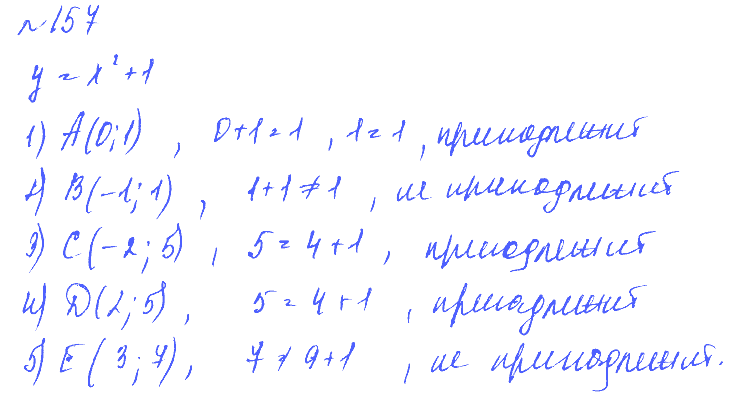 №157
y = x² + 1
1) A(0;1) , 0+1=1 , 1=1 , принадлежит
2) B(-1;1) , 1+1≠1 , не принадлежит
3) C(-2;5) , 5=4+1 , принадлежит
4) D(2;5) , 5=4+1 , принадлежит
5) E(3;7) , 7≠9+1 , не принадлежит.